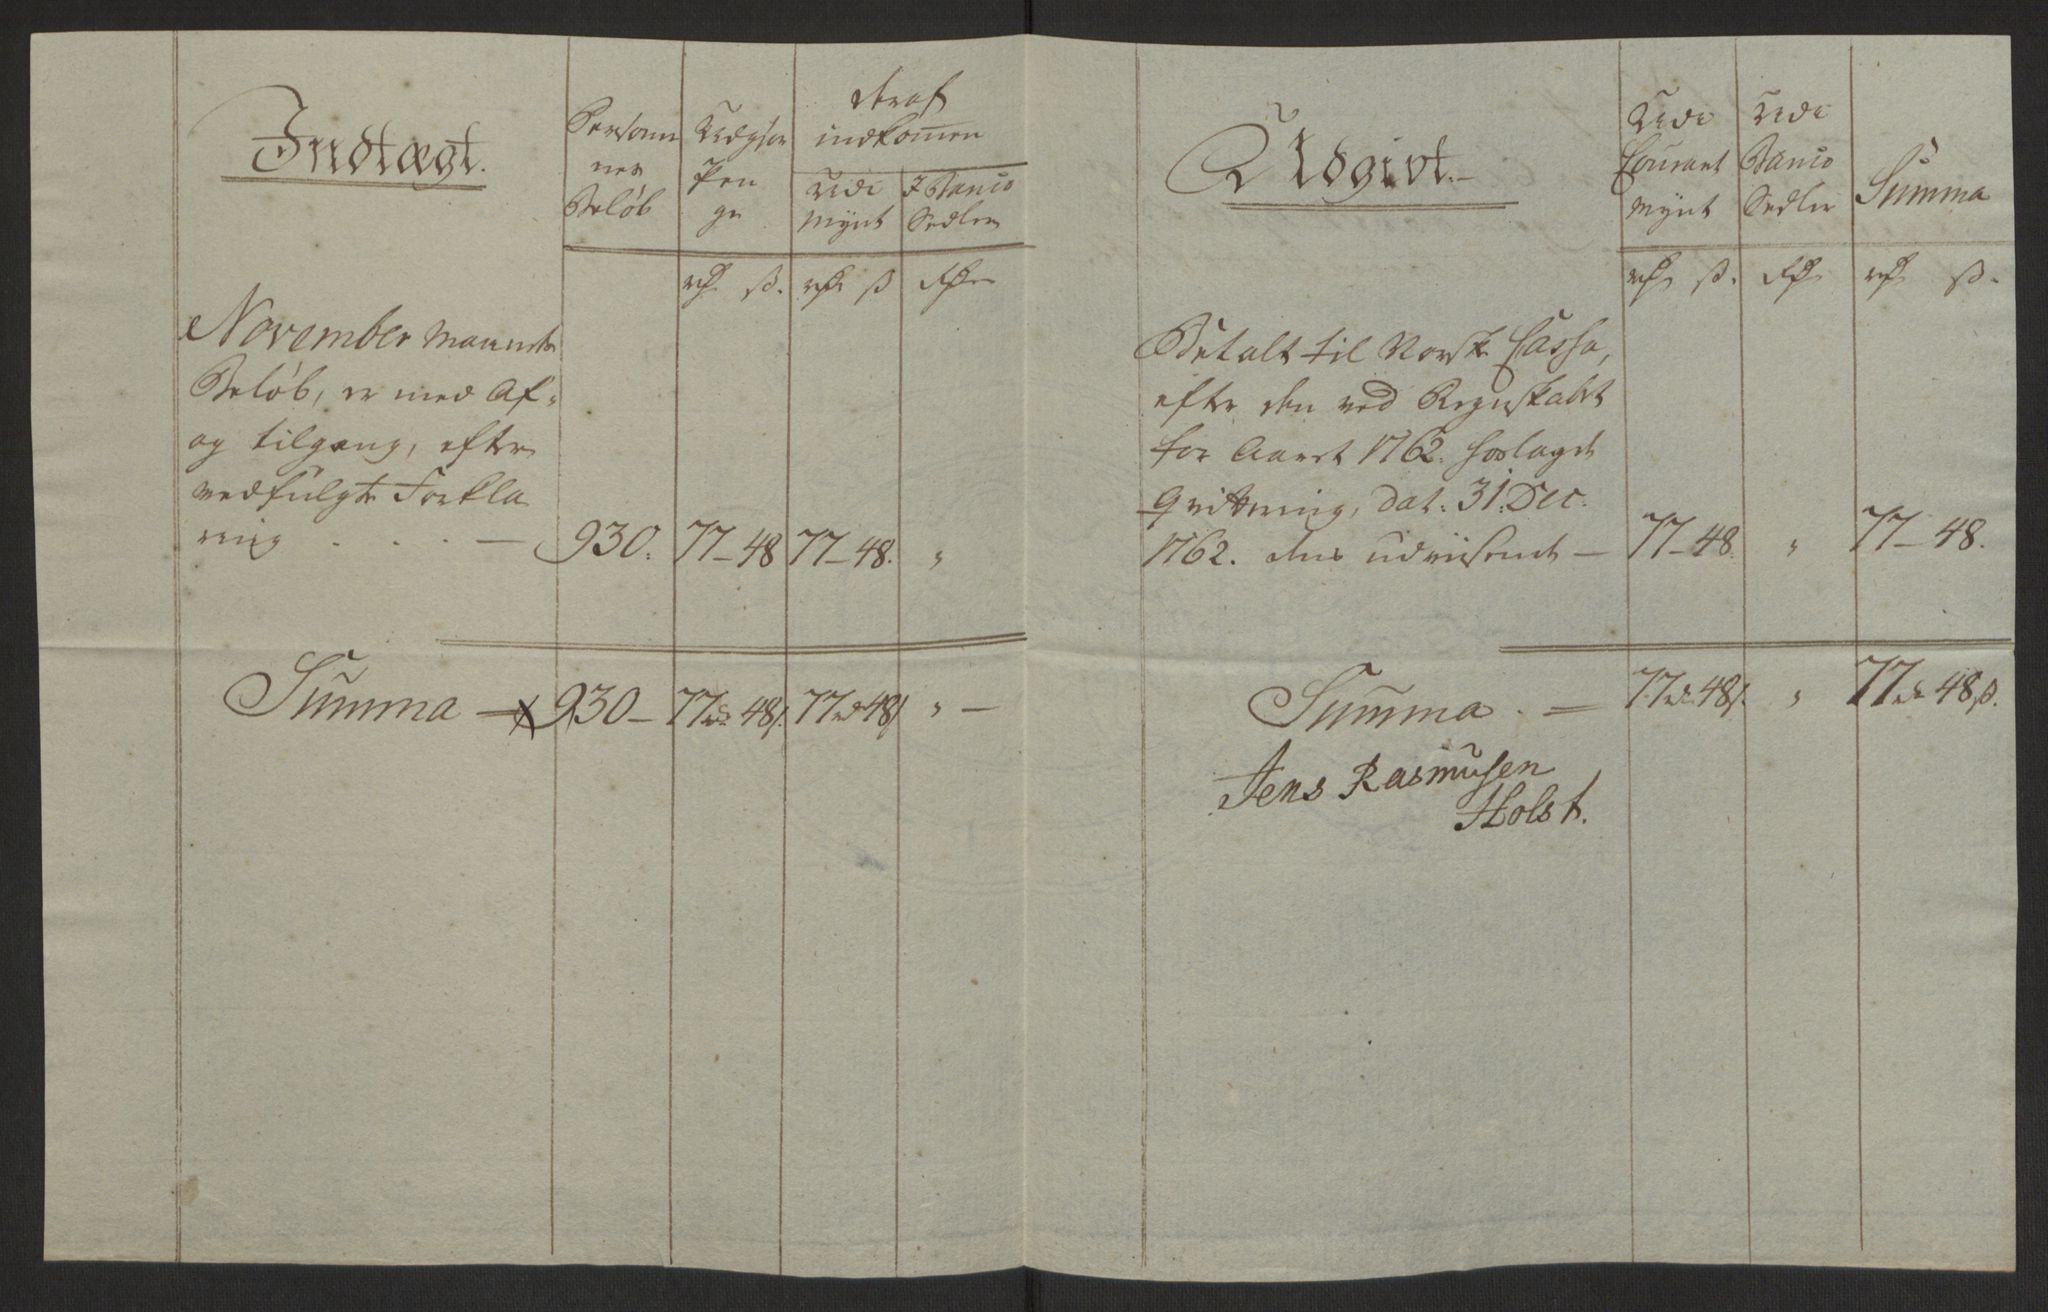 Indtægt.
Persohn
nes
Beløb
Udgjør
Pen
ge
deraf
indkomen
Udi
Mynt
I Banco
Sedler
rd ß. rd ß rd
November Maaneds
Beløb, er med Af-
og tilgang, efter
vedfulgte Forkla
ring . . . — 930. 77 – 48 77 – 48. "
Summa — 930 – 77 rd 48 ß. 77 rd 48 ß " —
Udgivt.–
Udi
Courant
Mynt
Udi
Banco
Sedler
Summa
rd ß. rd rd ß.
Betalt til Norske Cassa,
efter den ved Regnskabet
for Aaret 1762. hoslagde
Qvittering, dat. 31. Dec.
1762. dens udviisende — 77 – 48. " 77 – 48.
Summa . — 77 rd 48 ß. " 77 rd 48 ß.
Jens Rasmusen
Holst.